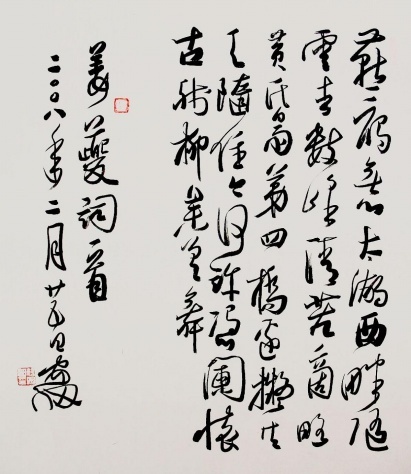 燕雁無心太湖西畔随
雲去數峰清苦商略
黄昏雨第四橋邊擬共
天隨住今何許憑闌懷
古殘柳參差舞
姜夔詞一首
二〇〇八年二月廿五日